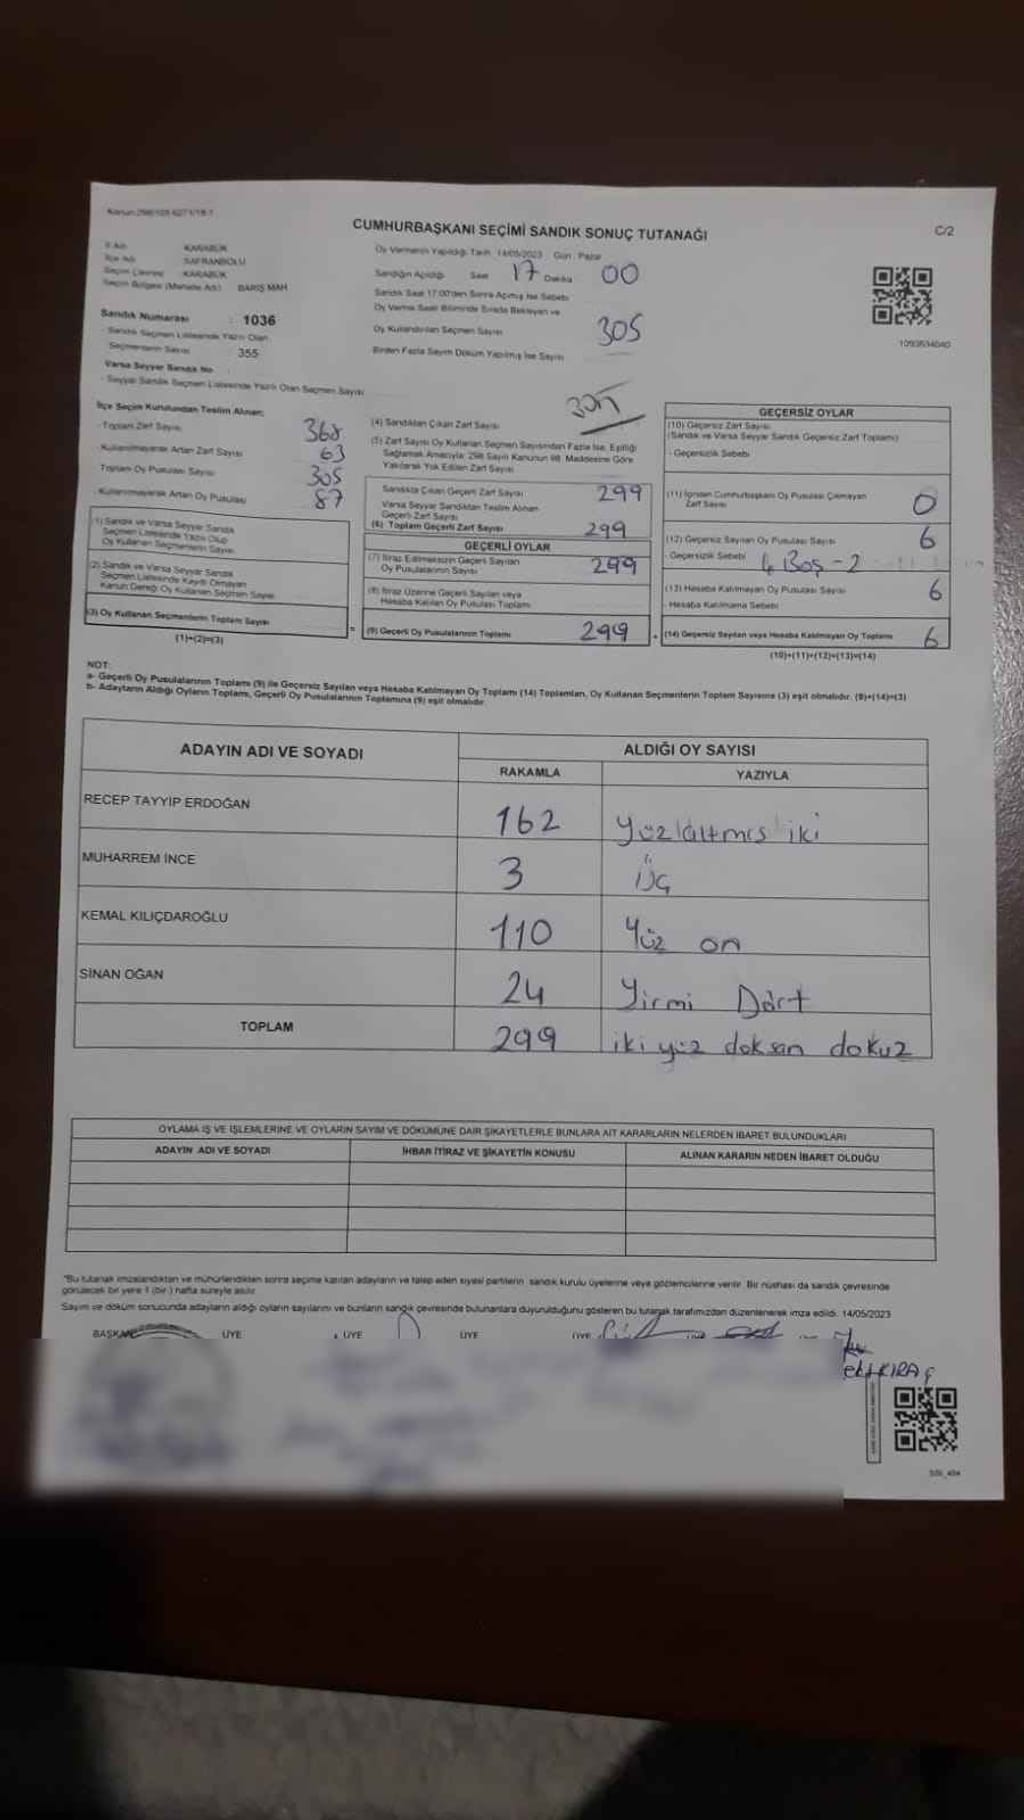 Kanun:298/105 6271/18-1
CUMHURBAŞKANI SEÇİMİ SANDIK SONUÇ TUTANAĞI
C/2
İl Adı KARABÜK
İlçe Adı SAFRANBOLU
Seçim Çevresi KARABÜK
Seçim Bölgesi (Mahalle Adı) BARIŞ MAH
Sandık Numarası : 1036
- Sandık Seçmen Listesinde Yazılı Olan
Seçmenlerin Sayısı 355
Varsa Seyyar Sandık No
- Seyyar Sandık Seçmen Listesinde Yazılı Olan Seçmen Sayısı
Oy Vermenin Yapıldığı Tarih 14/05/2023 Gün : Pazar
Sandığın Açıldığı Saat 17 Dakika 00
Sandık Saat 17:00'den Sonra Açılmış İse Sebebi
Oy Verme Saati Bitiminde Sırada Bekleyen ve
Oy Kullandırılan Seçmen Sayısı 305
Birden Fazla Sayım Döküm Yapılmış İse Sayısı
1093534040
İlçe Seçim Kurulundan Teslim Alınan:
- Toplam Zarf Sayısı 368
Kullanılmayarak Artan Zarf Sayısı 63
Toplam Oy Pusulası Sayısı 305
- Kullanılmayarak Artan Oy Pusulası 87
(1) Sandık ve Varsa Seyyar Sandık
Seçmen Listesinde Yazılı Olup
Oy Kullanan Seçmenlerin Sayısı
(2) Sandık ve Varsa Seyyar Sandık
Seçmen Listesinde Kayıtlı Olmayan
Kanun Gereği Oy Kullanan Seçmen Sayısı
(3) Oy Kullanan Seçmenlerin Toplam Sayısı
(1)+(2)=(3)
(4) Sandıktan Çıkan Zarf Sayısı
(5) Zarf Sayısı Oy Kullanan Seçmen Sayısından Fazla İse, Eşitliği
Sağlamak Amacıyla; 298 Sayılı Kanunun 98. Maddesine Göre
Yakılarak Yok Edilen Zarf Sayısı
Sandıkta Çıkan Geçerli Zarf Sayısı 299
Varsa Seyyar Sandıktan Teslim Alınan
Geçerli Zarf Sayısı
(6) Toplam Geçerli Zarf Sayısı 299
GEÇERLİ OYLAR
(7) İtiraz Edilmeksizin Geçerli Sayılan
Oy Pusulalarının Sayısı 299
(8) İtiraz Üzerine Geçerli Sayılan veya
Hesaba Katılan Oy Pusulası Toplamı
= (9) Geçerli Oy Pusulalarının Toplamı 299
GEÇERSİZ OYLAR
(10) Geçersiz Zarf Sayısı
(Sandık ve Varsa Seyyar Sandık Geçersiz Zarf Toplamı)
- Geçersizlik Sebebi
(11) İçinden Cumhurbaşkanı Oy Pusulası Çıkmayan
Zarf Sayısı 0
(12) Geçersiz Sayılan Oy Pusulası Sayısı 6
- Geçersizlik Sebebi 4 Boş - 2
(13) Hesaba Katılmayan Oy Pusulası Sayısı 6
- Hesaba Katılmama Sebebi
+ (14) Geçersiz Sayılan veya Hesaba Katılmayan Oy Toplamı 6
(10)+(11)+(12)+(13)=(14)
NOT:
a- Geçerli Oy Pusulalarının Toplamı (9) ile Geçersiz Sayılan veya Hesaba Katılmayan Oy Toplamı (14) Toplamları, Oy Kullanan Seçmenlerin Toplam Sayısına (3) eşit olmalıdır. (9)+(14)=(3)
b- Adayların Aldığı Oyların Toplamı, Geçerli Oy Pusulalarının Toplamına (9) eşit olmalıdır.
ADAYIN ADI VE SOYADI
ALDIĞI OY SAYISI
RAKAMLA YAZIYLA
RECEP TAYYİP ERDOĞAN 162 Yüzaltmış iki
MUHARREM İNCE 3 Üç
KEMAL KILIÇDAROĞLU 110 Yüz on
SİNAN OĞAN 24 Yirmi Dört
TOPLAM 299 iki yüz doksan dokuz
OYLAMA İŞ VE İŞLEMLERİNE VE OYLARIN SAYIM VE DÖKÜMÜNE DAİR ŞİKAYETLERLE BUNLARA AİT KARARLARIN NELERDEN İBARET BULUNDUKLARI
ADAYIN ADI VE SOYADI İHBAR İTİRAZ VE ŞİKAYETİN KONUSU ALINAN KARARIN NEDEN İBARET OLDUĞU
"Bu tutanak imzalandıktan ve mühürlendikten sonra seçime katılan adayların ve talep eden siyasi partilerin sandık kurulu üyelerine veya gözlemcilerine verilir. Bir nüshası da sandık çevresinde
görülecek bir yere 1 (bir) hafta süreyle asılır.
Sayım ve döküm sonucunda adayların aldığı oyların sayılarını ve bunların sandık çevresinde bulunanlara duyurulduğunu gösteren bu tutanak tarafımızdan düzenlenerek imza edildi. 14/05/2023
BAŞKAN ÜYE ÜYE ÜYE ÜYE